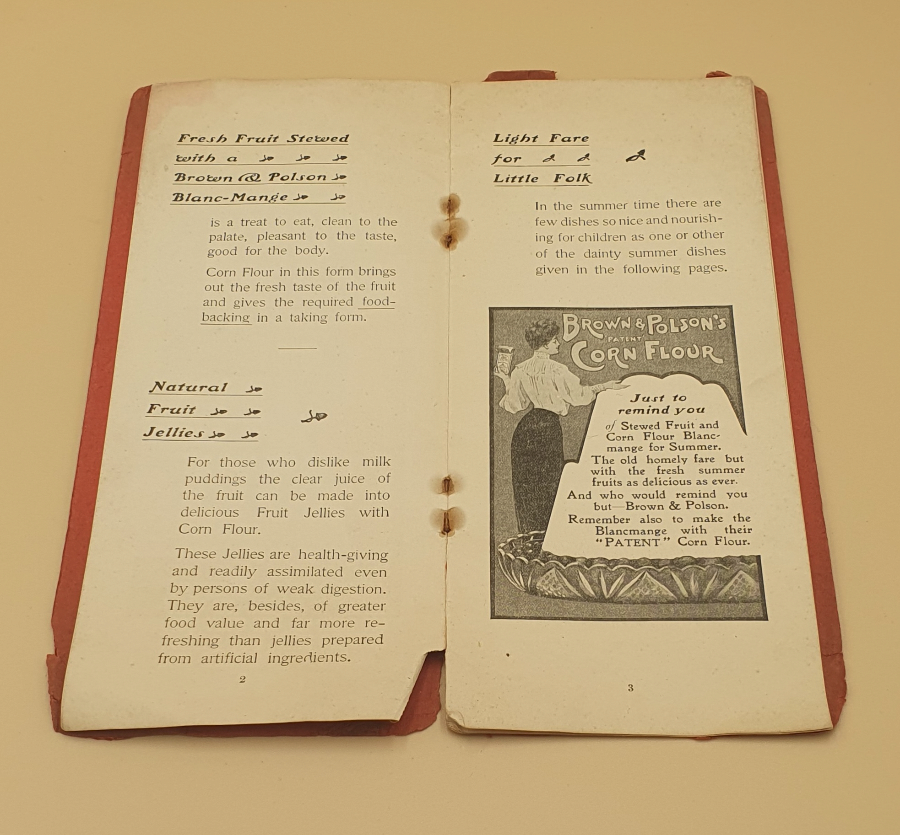 Fresh Fruit Stewed
with a
Brown & Polson
Blanc-Mange
is a treat to eat, clean to the
palate, pleasant to the taste,
good for the body.
Corn Flour in this form brings
out the fresh taste of the fruit
and gives the required food-
backing in a taking form.
Natural
Fruit
Jellies
For those who dislike milk
puddings the clear juice of
the fruit can be made into
delicious Fruit Jellies with
Corn Flour.
These Jellies are health-giving
and readily assimilated even
by persons of weak digestion.
They are, besides, of greater
food value and far more re-
freshing than jellies prepared
from artificial ingredients.
2
Light Fare
for
Little Folk
In the summer time there are
few dishes so nice and nourish-
ing for children as one or other
of the dainty summer dishes
given in the following pages.
BROWN & POLSON'S
PATENT
CORN FLOUR
Just to
remind you
of Stewed Fruit and
Corn Flour Blanc-
mange for Summer.
The old homely fare but
with the fresh summer
fruits as delicious as ever.
And who would remind you
but—Brown & Polson.
Remember also to make the
Blancmange with their
"PATENT" Corn Flour.
3